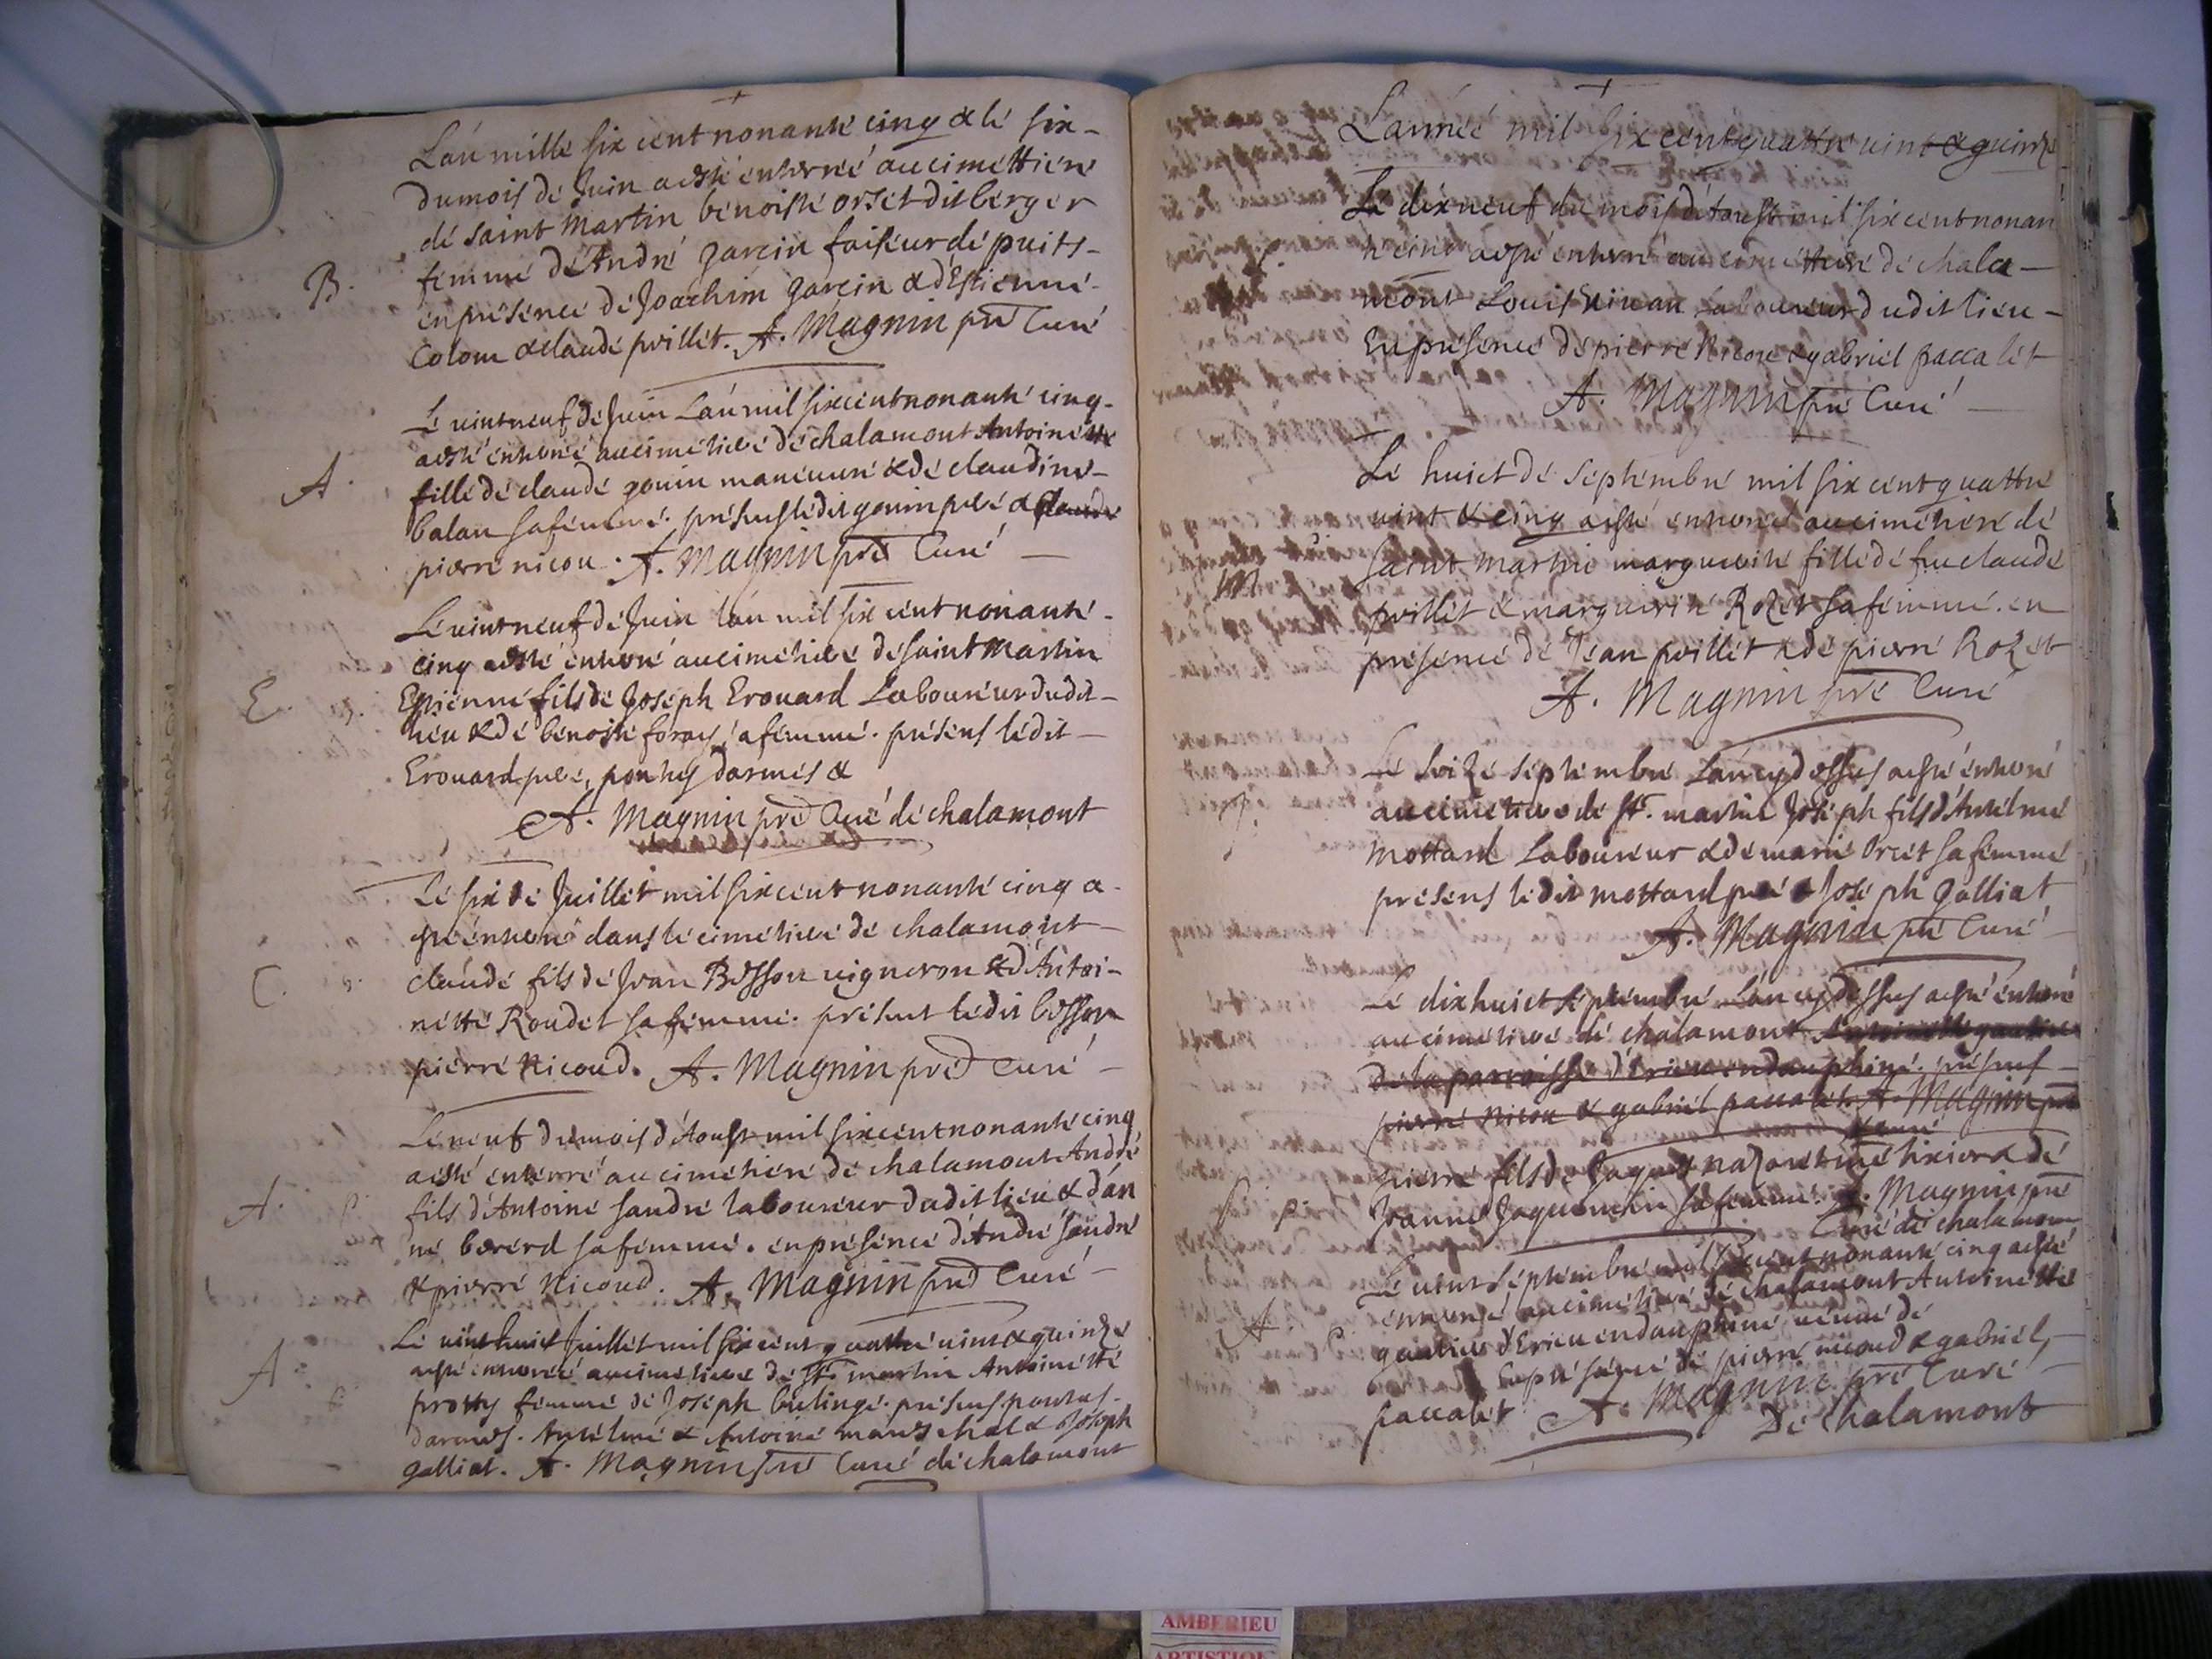 +
L'an mille six cent nonante cinq & le six -
du mois de Juin a esté enterreé au cimettiere
de saint Martin benoiste orset dit berger
B. femme d'André garcin faiseur de puits -
en présence de Joachim garcin & d'Estienne -
Colom & claude poillet. A. Magnin pre Curé
Le vint neuf de Juin L'an mil six cent nonante cinq -
a esté enterré au cimetiere de chalamont Antoinette
A. fille de claude gonin maneuure & de claudine -
balan sa femme. présens ledit gonin pere &
pierre nicou. A. Magnin pre Curé -
Le vint neuf de Juin l'an mil six cent nonante -
cinq a esté enterré au cimetiere de saint Martin
E. Estienne fils de Joseph Erouard Laboureur dudit -
lieu & de benoiste foray sa femme. présens ledit -
Erouard pere, ponthus darmes &
A. Magnin pre Curé de chalamont
Le six de Juillet mil six cent nonante cinq a -
esté enterré dans le cimetiere de chalamont -
C. claude fils de Jean Besson uigneron & d'Antoi -
nette Roudet sa femme. présent ledit besson
pierre Nicoud. A. Magnin pre Curé -
Le neuf du mois d'Aoust mil six cent nonante cinq
a esté enterré au cimetiere de chalamont André
A. fils d'Antoine sandre laboureur dudit lieu & d'an
ne berérd sa femme. en présence d'André sandre
& pierre Nicoud. A. Magnin pre Curé -
Le vint huict Juillet mil six cent quattre vint & quinze
A. esté enterreé au cimetiere de st. martin Antoinette
protty femme de Joseph bulinge. présens pontus -
darmes. Antelme & Antoine mareschal & Joseph
galliat. A. Magnin pre Curé de chalamont
+
L'année mil six cent quattre vint & quinze
Le dix neuf du mois d'Aoust mil six cent nonan
te cinq a esté enterré au cimettiere de chala -
mont Louis Laboureur dudit lieu -
En présence de pierre Nicou & gabriel paccalet
A. Magnin pre Curé -
Le huict de septembre mil six cent quattre
vint & cinq a esté enterré au cimetiere de
M saint Martin marguerite fille de feu claude
poillet & marguerite Rozet sa femme. en
présence de Jean poillet & de pierre Rozet
A. Magnin pre Curé
Le seize septembre L'an cy dessus a esté enterré
J. au cimetiere de st. martin Joseph fils d'Antelme
Mottard Laboureur & de marie Orset sa femme
présens ledit mottard pere & Joseph galliat
A. Magnin pre Curé
Le dix huict septembre L'an cy dessus a esté enterré
au cimetiere de chalamont Antoinette gautier
de la parroisse d'Erieu en dauphiné. présens -
pierre Nicou & gabriel paccalet. A. Magnin pre
Curé
P. pierre fils de Jaques nazaret me tixier & de
Jeanne Jaquemin sa femme. A. Magnin pre
Curé de chalamont
Le vint septembre mil six cent nonante cinq a esté
A enterreé au cimetiere de chalamont Antoinette
gautier d'Erieu en dauphiné ueuue de
En présence de pierre nicoud & gabriel -
paccalet A. Magnin pre Curé -
De chalamont
AMBERIEU
ARTISTIQUE